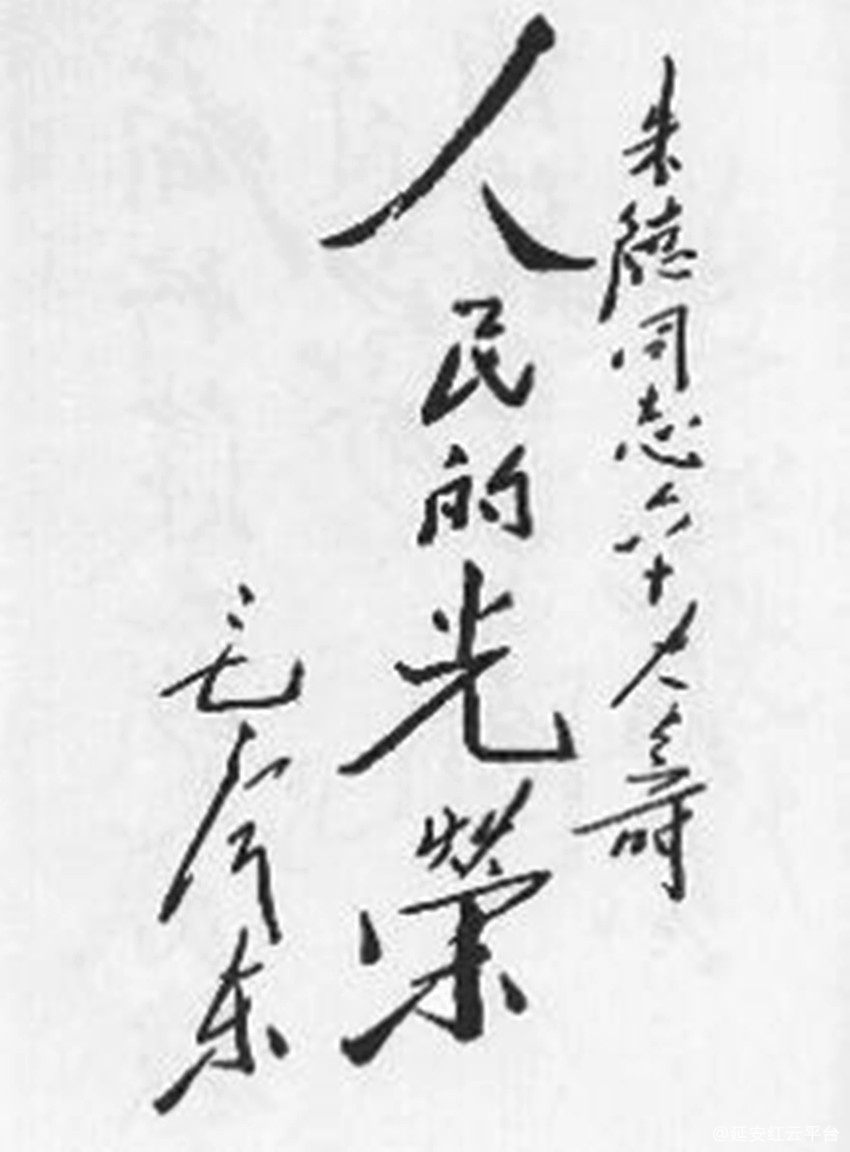 朱德同志六十大寿
人民的光榮
毛泽东
@延安红云平台